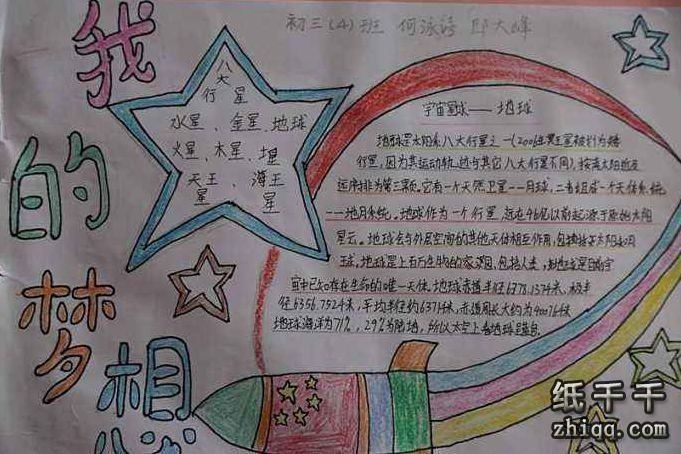 初三(4)班 何泳诗 邱大峰
我
的
梦
想
八大
行星
水星、金星、地球
火星、木星、
天王星、海王星
宇宙星球——地球
地球是太阳系八大行星之一(2006年冥王星被划为矮
行星,因为其运动轨迹与其它八大行星不同),按离太阳由近
及远序排为第三颗。它有一个天然卫星——月球,二者组成一个天体系统
——地月系统。地球作为一个行星,远在46亿以前起源于原始太阳
星云。地球会与外层空间的其他天体相互作用,包括太阳和月
球。地球是上百万生物的家园,包括人类,地球是目前宇
宙中已知存在生命的唯一天体。地球赤道半径6378.137千米,极半
径6356.752千米,平均半径约6371千米,赤道周长大约为40076千米
地球海洋为71%,29%为陆地,所以太空上看地球呈蓝色
纸千千
zhiqq.com